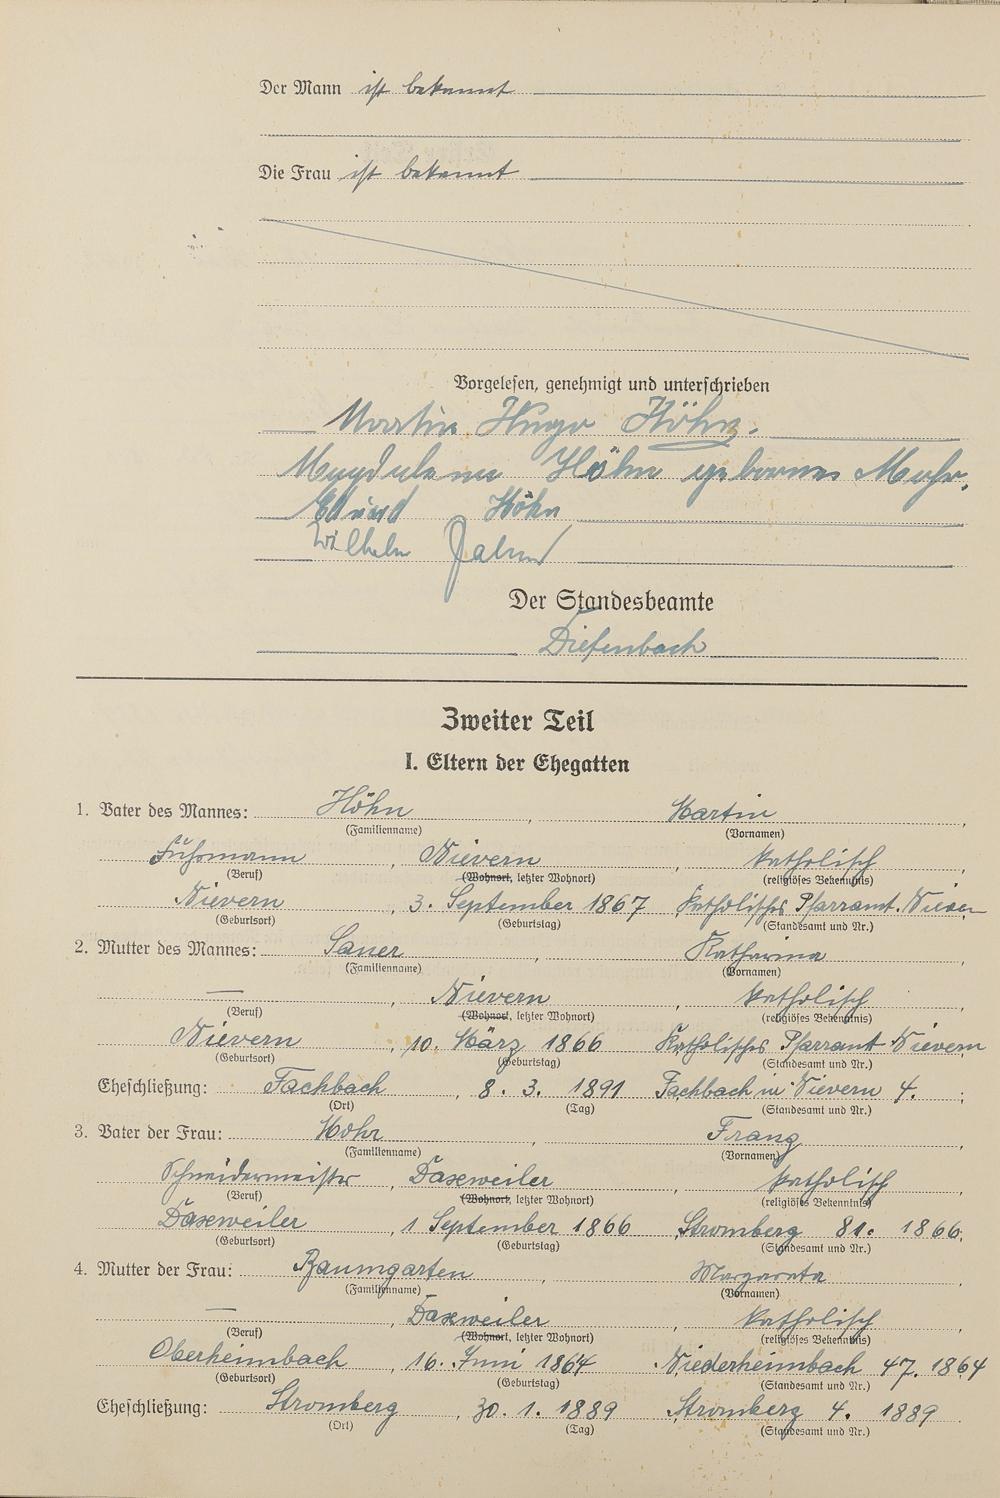 Der Mann ist bekannt
Die Frau ist bekannt
Vorgelesen, genehmigt und unterschrieben
Martin Hugo Höhn.
Magdalena Höhn geborene Mohr.
Eduard Höhn
Wilhelm
Der Standesbeamte
Diefenbach
Zweiter Teil
I. Eltern der Ehegatten
1. Vater des Mannes: Höhn, Martin,
(Familienname) (Vornamen)
Fuhrmann, Nievern, katholisch
(Beruf) (Wohnort, letzter Wohnort) (religiöses Bekenntnis)
Nievern, 3. September 1867 Katholisches Pfarramt Nievern
(Geburtsort) (Geburtstag) (Standesamt und Nr.)
2. Mutter des Mannes: Sauer, Katharina,
(Familienname) (Vornamen)
—, Nievern, katholisch
(Beruf) (Wohnort, letzter Wohnort) (religiöses Bekenntnis)
Nievern, 10. März 1866 Katholisches Pfarramt Nievern
(Geburtsort) (Geburtstag) (Standesamt und Nr.)
Eheschließung: Fachbach, 8. 3. 1891 Fachbach in Nievern 4.;
(Ort) (Tag) (Standesamt und Nr.)
3. Vater der Frau: Mohr, Franz,
(Familienname) (Vornamen)
Schneidermeister, Daxweiler, katholisch
(Beruf) (Wohnort, letzter Wohnort) (religiöses Bekenntnis)
Daxweiler, 1 September 1866 Stromberg 81. 1866;
(Geburtsort) (Geburtstag) (Standesamt und Nr.)
4. Mutter der Frau: Baumgarten, Margareta,
(Familienname) (Vornamen)
—, Daxweiler, katholisch
(Beruf) (Wohnort, letzter Wohnort) (religiöses Bekenntnis)
Oberheimbach, 16. Juni 1864 Niederheimbach 47. 1864
(Geburtsort) (Geburtstag) (Standesamt und Nr.)
Eheschließung: Stromberg, 30. 1. 1889 Stromberg 4. 1889.
(Ort) (Tag) (Standesamt und Nr.)